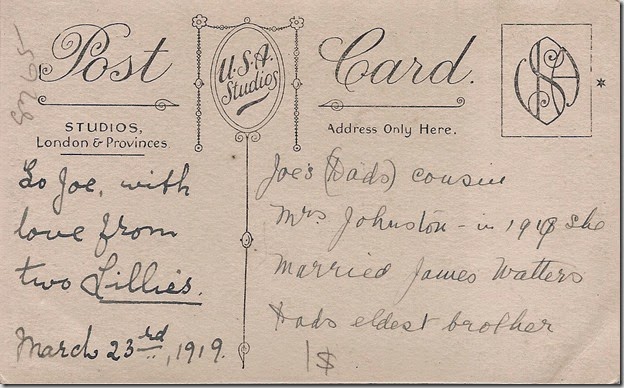 Post Card.
U.S.A. Studios
STUDIOS,
London & Provinces
Address Only Here.
To Joe, with
love from
two Lillies.
March 23rd, 1919.
Joe's (Dads) cousin
Mrs Johnston - in she
Married James Watters
Dads eldest brother
1$